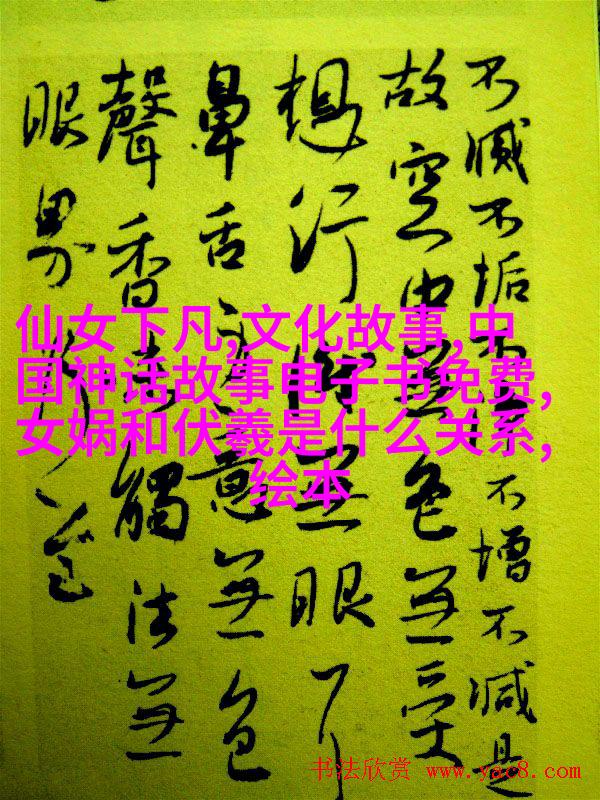 不滅不垢不淨不增不減是
故空中無色無受
想行識無眼耳
鼻舌身意無色
聲香味觸法無
眼界乃至
仙女下凡,文化故事,中
国神话故事电子书免费,
女娲和伏羲是什么关系,
绘本
书法欣赏 www.yac8.com